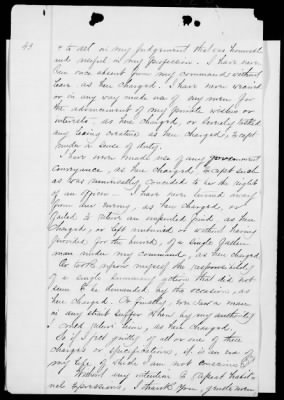 43
& to act in my judgement that was honorable
and useful in my profession. I have never
been once absent from my command without
leave as here charged. I have never
or in any way made use of my men for
the advancement of my private wishes or
interests, as here charged, or
any living creature as here charged, except
under a sense of duty.
I have never made use of any government
conveyance, as here charged, except such
as was universally conceded to be the right
of an officer. I have never turned away
from one wrong, as here charged, or
failed to return an unexpended fund, as here
charged, or left unburied or without having
provided for the burial, of a single fallen
man under my command, as here charged
Or took upon myself the responsibility
of a single summary action that did not
seem to be demanded by the occasion as
here charged. Or finally, ever saw a man
in any strait suffer when by my authority
I could relieve him, as here charged.
So if I feel guilty of all or one of these
charges or specifications, it is an era of
my life of which I am not conscious.
Without any intention to repeat
expressions. I thank you, gentlemen